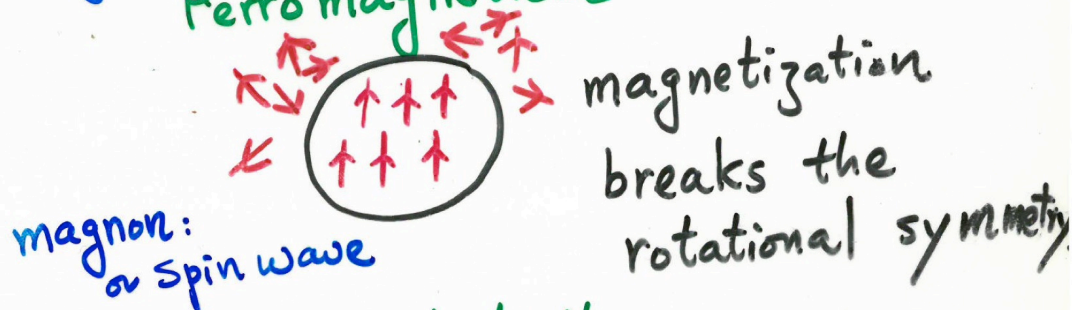 magnetization
breaks the
rotational symmetry
magnon:
or spin wave